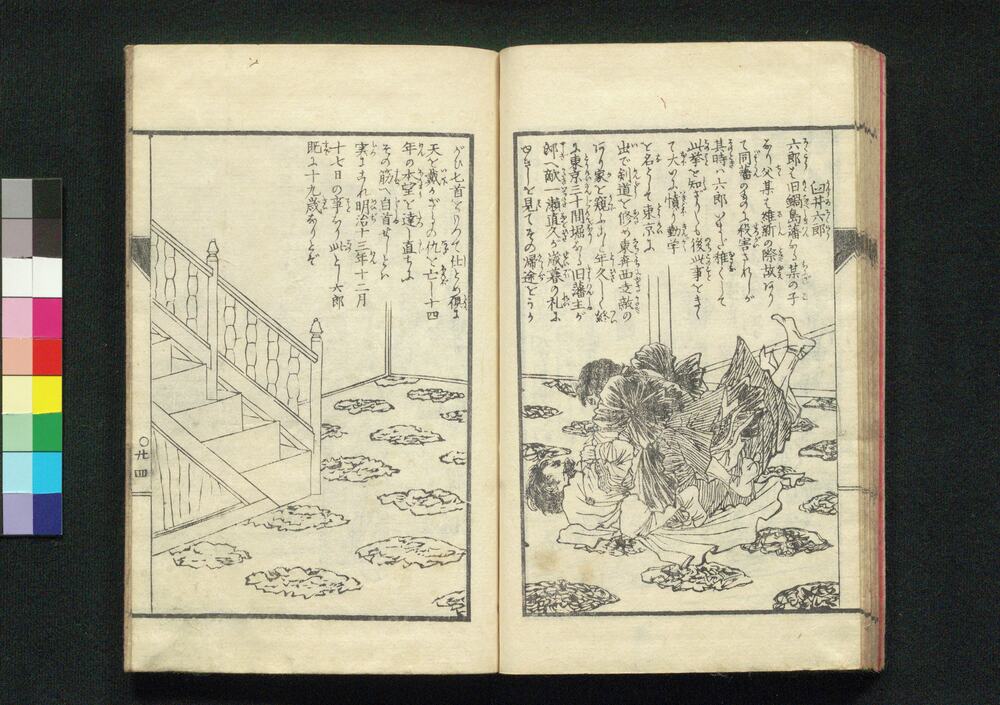 臼井六郎
六郎ハ旧鍋島藩なる某の子
なり父某ハ維新の際故あり
て同藩のものに殺害されしが
其時ハ六郎まだ稚くして
此挙を知ざりしも後此事をきゝ
て大いに憤り勤学
を名として東京に
出で剣道を修め東奔西走敵の
在家を窺ふこと年久しく終
に東京三十間堀なる旧藩主が
邸へ敵一瀬直久が歳暮の礼に
を見てその帰途をうか
がひ匕首をもつて仕とめ倶に
天を戴かざるの仇を亡し十四
年の本望を達し直ちに
その筋へ自首せしとハ
実にこれ明治十三年十二月
十七日の事なり此とし六郎
既に十九歳なりとぞ
〇廿四